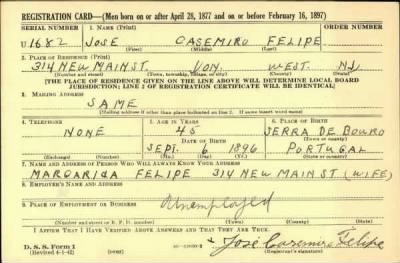 REGISTRATION CARD—(Men born on or after April 28, 1877 and on or before February 16, 1897)
SERIAL NUMBER 1. NAME (Print)
U1682 JOSE CASEMIRO FELIPE
(First) (Middle) (Last)
2. PLACE OF RESIDENCE (Print)
314 NEW MAIN ST YON. WEST. N.Y.
(Number and street) (Town, township, village, or city) (County) (State)
[THE PLACE OF RESIDENCE GIVEN ON THE LINE ABOVE WILL DETERMINE LOCAL BOARD
JURISDICTION; LINE 2 OF REGISTRATION CERTIFICATE WILL BE IDENTICAL]
3. MAILING ADDRESS
SAME
[Mailing address if other than place indicated on line 2. If same insert word same]
4. TELEPHONE 5. AGE IN YEARS 6. PLACE OF BIRTH
NONE 45 SERRA DE BOURO
DATE OF BIRTH (Town or county)
SEPT. 6 1896 PORTUGAL
(Exchange) (Number) (Mo.) (Day) (Yr.) (State or country)
7. NAME AND ADDRESS OF PERSON WHO WILL ALWAYS KNOW YOUR ADDRESS
MARGARIDA FELIPE 314 NEW MAIN ST (WIFE)
8. EMPLOYER'S NAME AND ADDRESS
9. PLACE OF EMPLOYMENT OR BUSINESS
Unemployed
(Number and street or R. F. D. number) (Town) (County) (State)
I AFFIRM THAT I HAVE VERIFIED ABOVE ANSWERS AND THAT THEY ARE TRUE.
D. S. S. Form 1
(Revised 4-1-42) Jose Casemiro Felipe